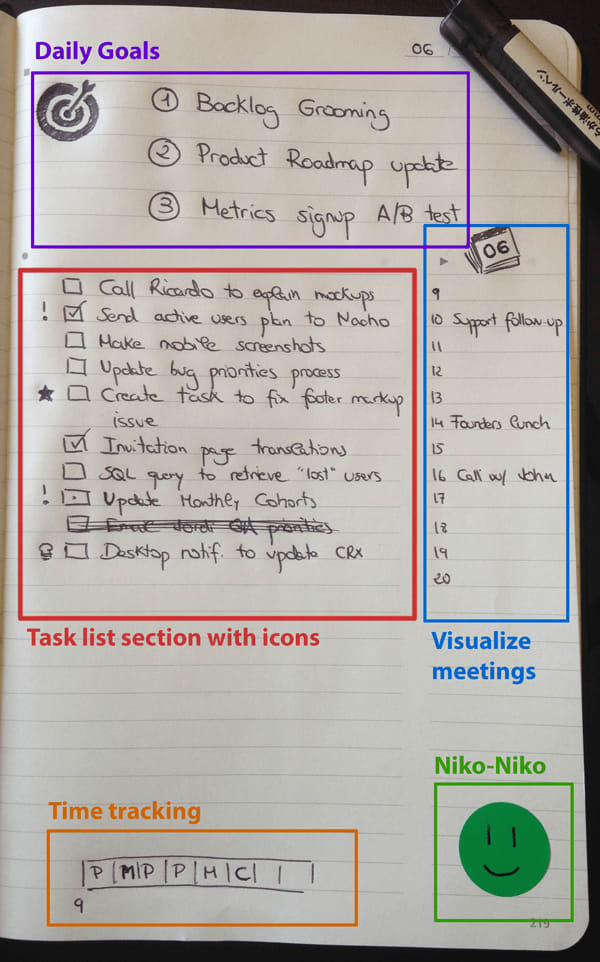 Daily Goals
06
① Backlog Grooming
② Product Roadmap update
③ Metrics signup A/B test
Call Ricardo to explain mockups
! Send active users plan to Nacho
Make mobile screenshots
Update bug priorities process
Create task to fix footer markup
issue
Invitation page translations
SQL query to retrieve "lost" users
! Update Monthly Cohorts
QA priorities
Desktop notif. to update CRX
Task list section with icons
06
9
10 Support follow-up
11
12
13
14 Founders lunch
15
16 Call w/ John
17
18
19
20
Visualize
meetings
Niko-Niko
Time tracking
P M P P M C
9
219